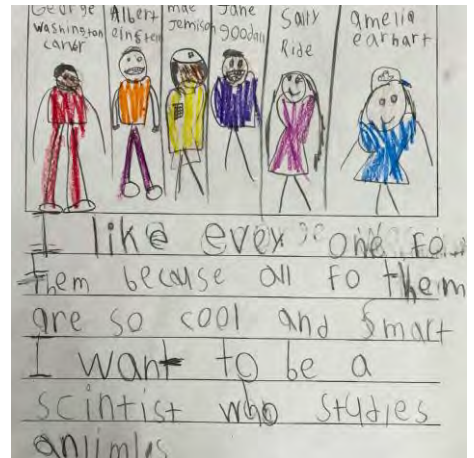 George Washington carver
Albert einstein
mae Jemison
Jane goodall
Sally Ride
amelia earhart
I like every one fo
them because all fo them
are so cool and smart
I want to be a
scintist who studies
anlimls